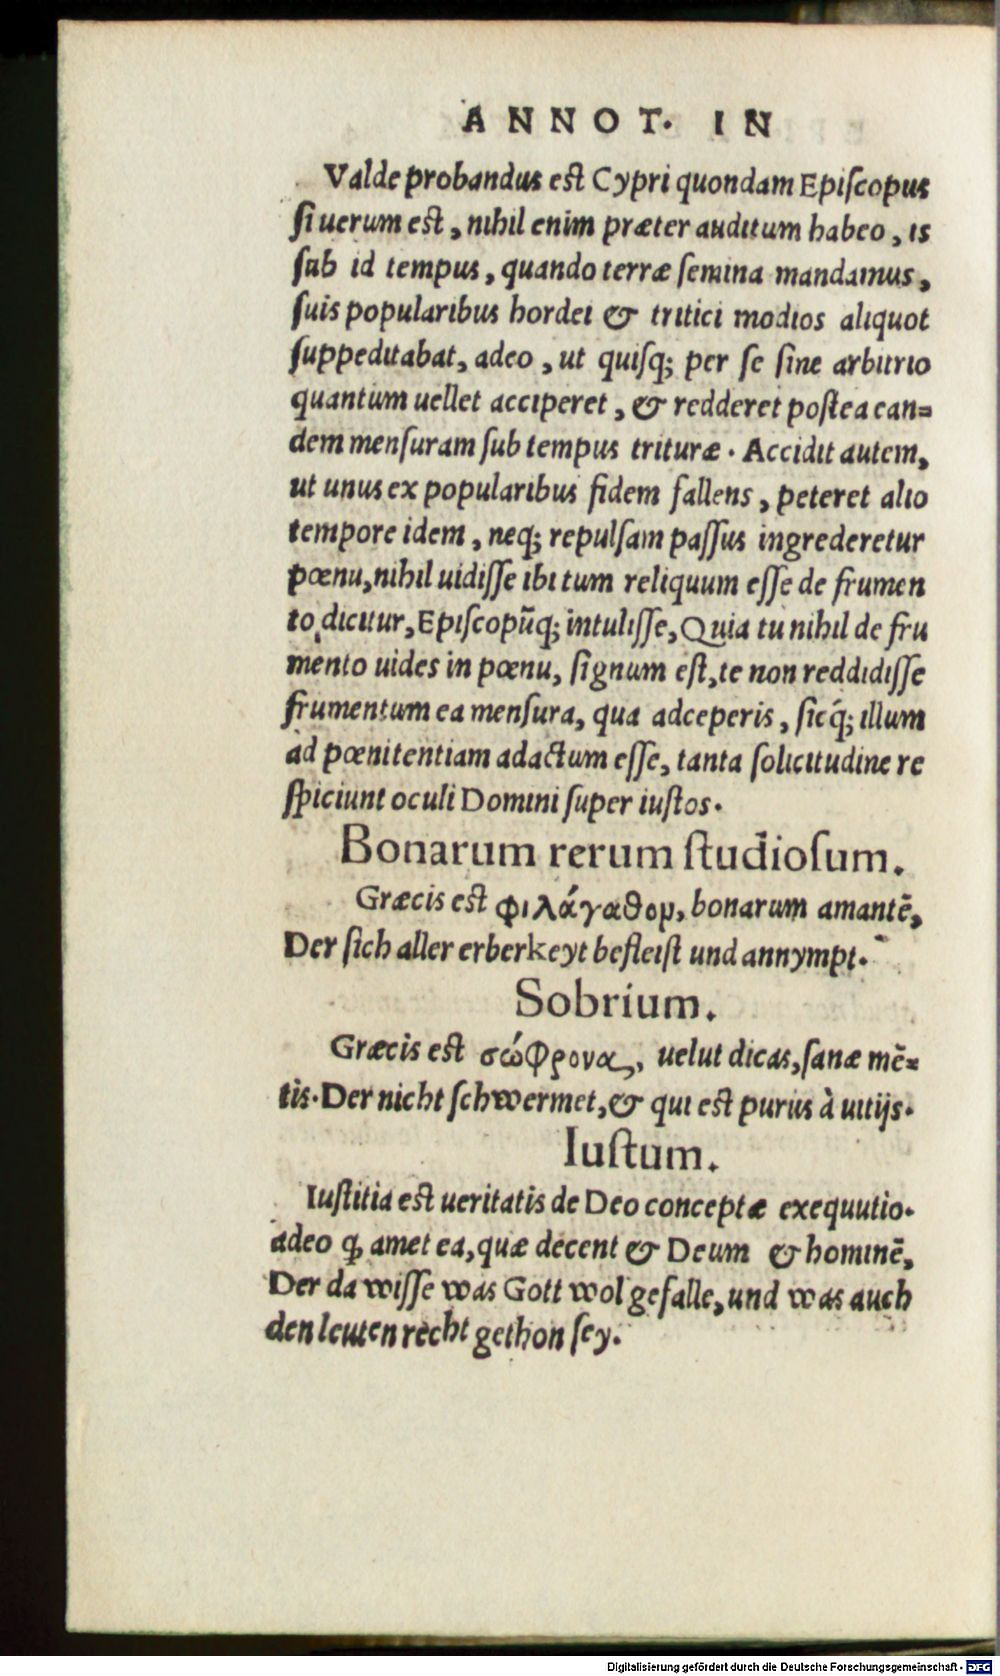 ANNOT. IN
Valde probandus est Cypri quondam Episcopus
si uerum est, nihil enim præter auditum habeo, is
sub id tempus, quando terræ semina mandamus,
suis popularibus hordei & tritici modios aliquot
suppeditabat, adeo, ut quisq; per se sine arbitrio
quantum uellet acciperet, & redderet postea ean=
dem mensuram sub tempus trituræ. Accidit autem,
ut unus ex popularibus fidem fallens, peteret alio
tempore idem, neq; repulsam passus ingrederetur
pœnu, nihil uidisse ibi tum reliquum esse de frumen
to dicitur, Episcopũq; intulisse, Quia tu nihil de fru
mento uides in pœnu, signum est, te non reddidisse
frumentum ea mensura, qua adceperis, sicq́; illum
ad pœnitentiam adactum esse, tanta solicitudine re
spiciunt oculi Domini super iustos.
Bonarum rerum studiosum.
Græcis est φιλάγαθον, bonarum amantē,
Der sich aller erberkeyt befleist und annympt.
Sobrium.
Græcis est σώφρονας, uelut dicas, sanæ mē=
tis. Der nicht schwermet, & qui est purus à uitijs.
Iustum.
Iustitia est ueritatis de Deo conceptæ exequutio.
adeo ꝙ amet ea, quæ decent & Deum & hominē,
Der da wisse was Gott wol gefalle, und was auch
den leuten recht gethon sey.
Digitalisierung gefördert durch die Deutsche Forschungsgemeinschaft - DFG